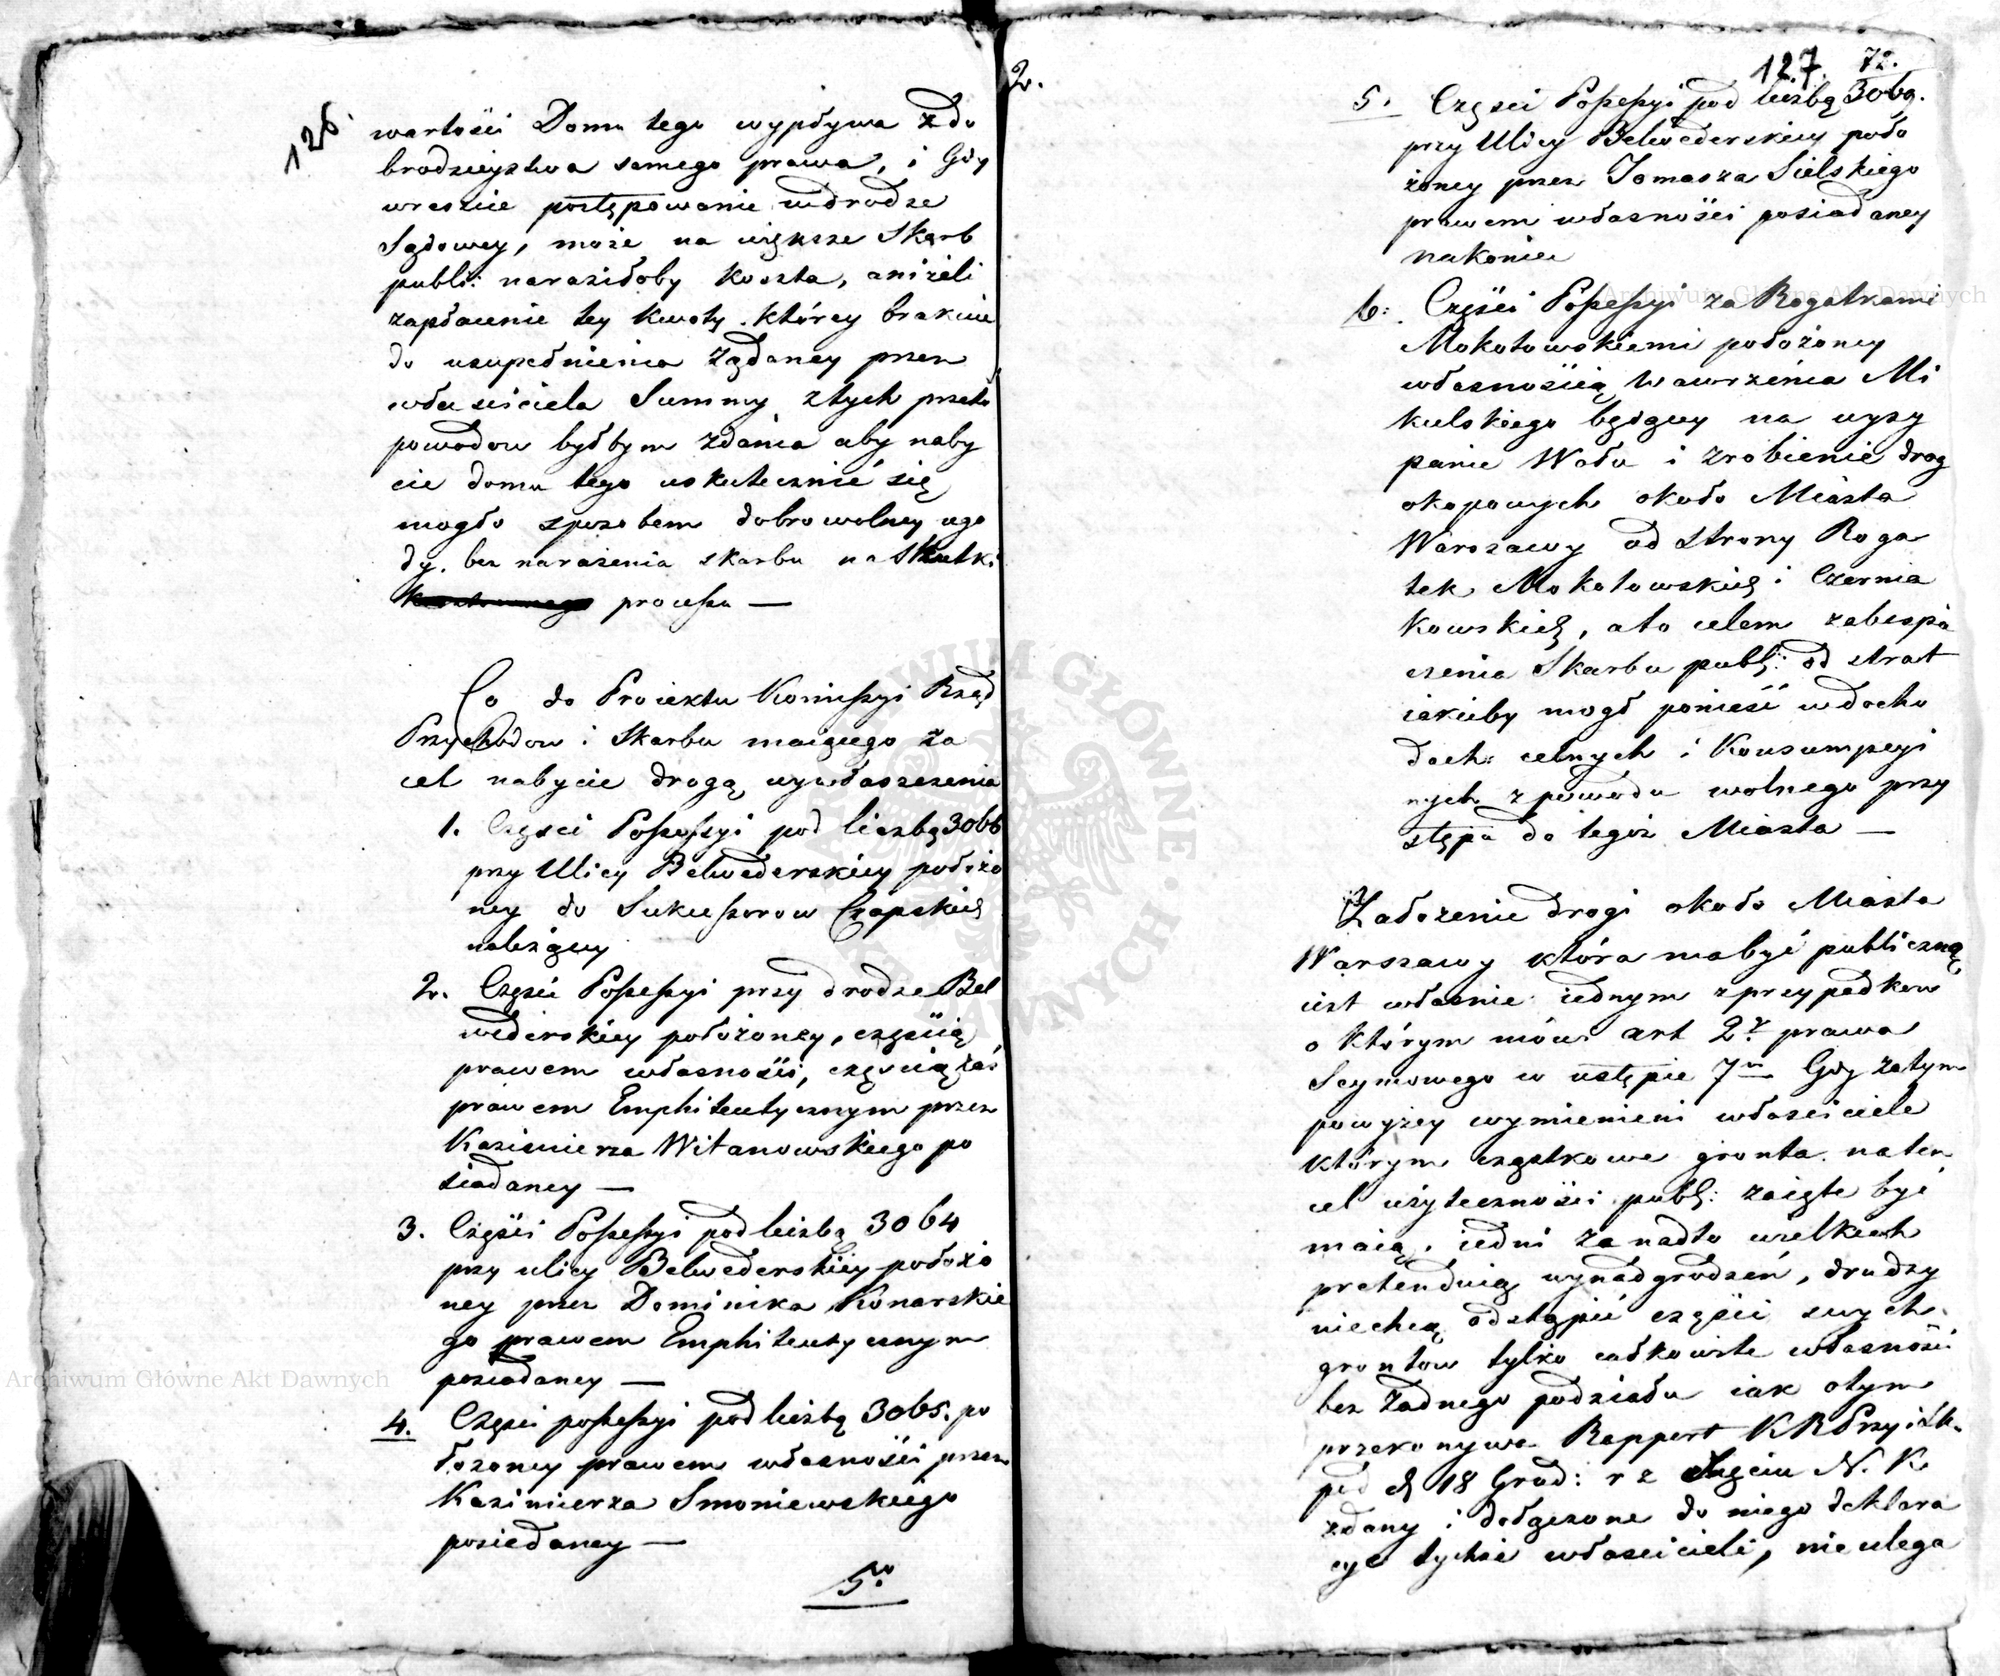 126.
wartości Domu tego wypływa z do
brodzieystwa samego prawa, i Gdy
wreszcie postępowanie w drodze
Sądowey, może na większe Skarb
publ: naraziłoby koszta, aniżeli
zapłacenie tey kwoty, którey brakuie
do uzupełnienia żądaney przez
właściciela Summy, z tych przeto
powodow byłbym zdania aby naby
cie domu tego uskutecznić się
mogło sposobem dobrowolney ugo
dy, bez narażenia skarbu na skutki
processu —
Co do Proiektu Kommissyi Rząd
Przychodow i Skarbu maiącego za
cel nabycie drogą wywłaszczenia
1. Części Possessyi pod liczbą 3066
przy Ulicy Belwederskiey położo
ney do Sukcessorow Czapskich
należącey
2. Części Possessyi przy drodze Bel
wederskiey położoney, częścią
prawem własności, częścią zaś
prawem Emphiteutycznym przez
Kazimierza Witanowskiego po
siadaney —
3. Części Possessyi pod liczbą 3064
przy ulicy Belwederskiey położo
ney przez Dominika Konarskie
go prawem Emphiteutycznym
posiadaney —
4. Części possessyi pod liczbą 3065. po
łożoney prawem własności przez
Kazimierza Smoniewskiego
posiadaney —
5o
2.
127. 72.
5. Części Possessyi pod liczbą
przy Ulicy Belwederskiey poło
żoney przez Tomasza Sielskiego
prawem własności posiadaney
nakoniec
6: Części Possessyi za Rogatkami
Mokotowskiemi położoney
własnością Wawrzeńca Mi
kulskiego będącey na usy
panie Wału i zrobienie drog
okopowych około Miasta
Warszawy od strony Roga
tek Mokotowskich i Czernia
kowskich, a to celem zabespie
czenia Skarbu publ: od strat
iakieby mogł ponieść w docho
dach celnych i Konsumpcyi
nych z powodu wolnego przy
stępu do tegoż Miasta —
Założenie drogi około Miasta
Warszawy która ma być publiczną
iest właśnie iednym z przypadkow
o którym mówi art 2. prawa
Seymowego w ustępie 7m Gdy zatym
powyżey wymienieni właściciele
którym cząstkowe gronta na ten
cel użyteczności publ: zaięte być
maią, iedni za nadto wielkich
pretenduią wynadgrodzeń, drudzy
niechcą odstąpić części swych
grontow tylko całkowite własności
bez żadnego podziału iak o tym
przekonywa Rapport KRPrzy i Sk.
pod d 18 Grud: r z Xięciu N. K.
zdany i dołączone do niego deklara
cye tychże właścicieli, nie ulega
Archiwum Główne Akt Dawnych
Archiwum Główne Akt Dawnych
ARCHIWUM GŁÓWNE AKT DAWNYCH